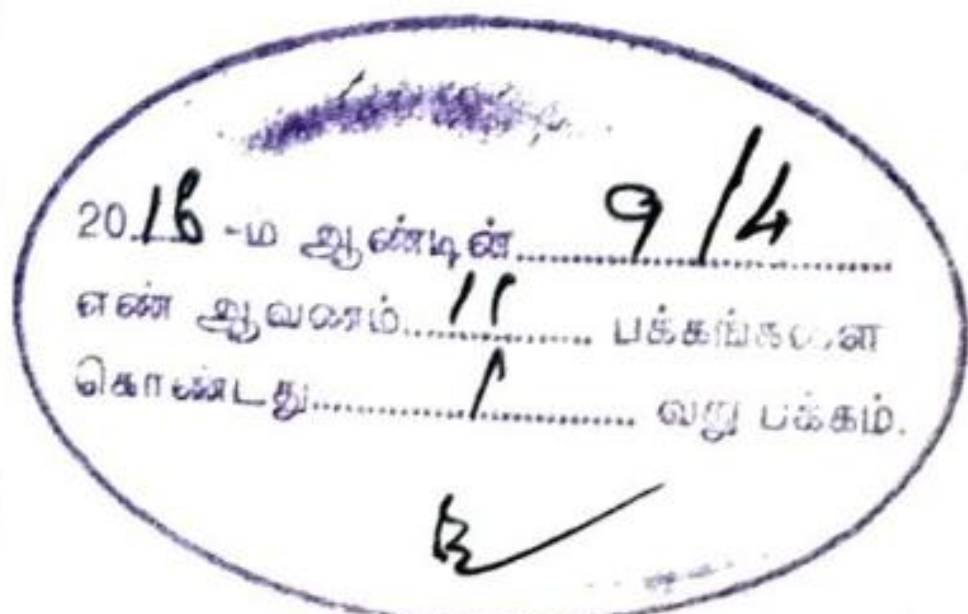 2018 -ம ஆண்டின் 914
எண் ஆவணம் 11 பக்கங்களை
கொண்டது 1 வது பக்கம்.